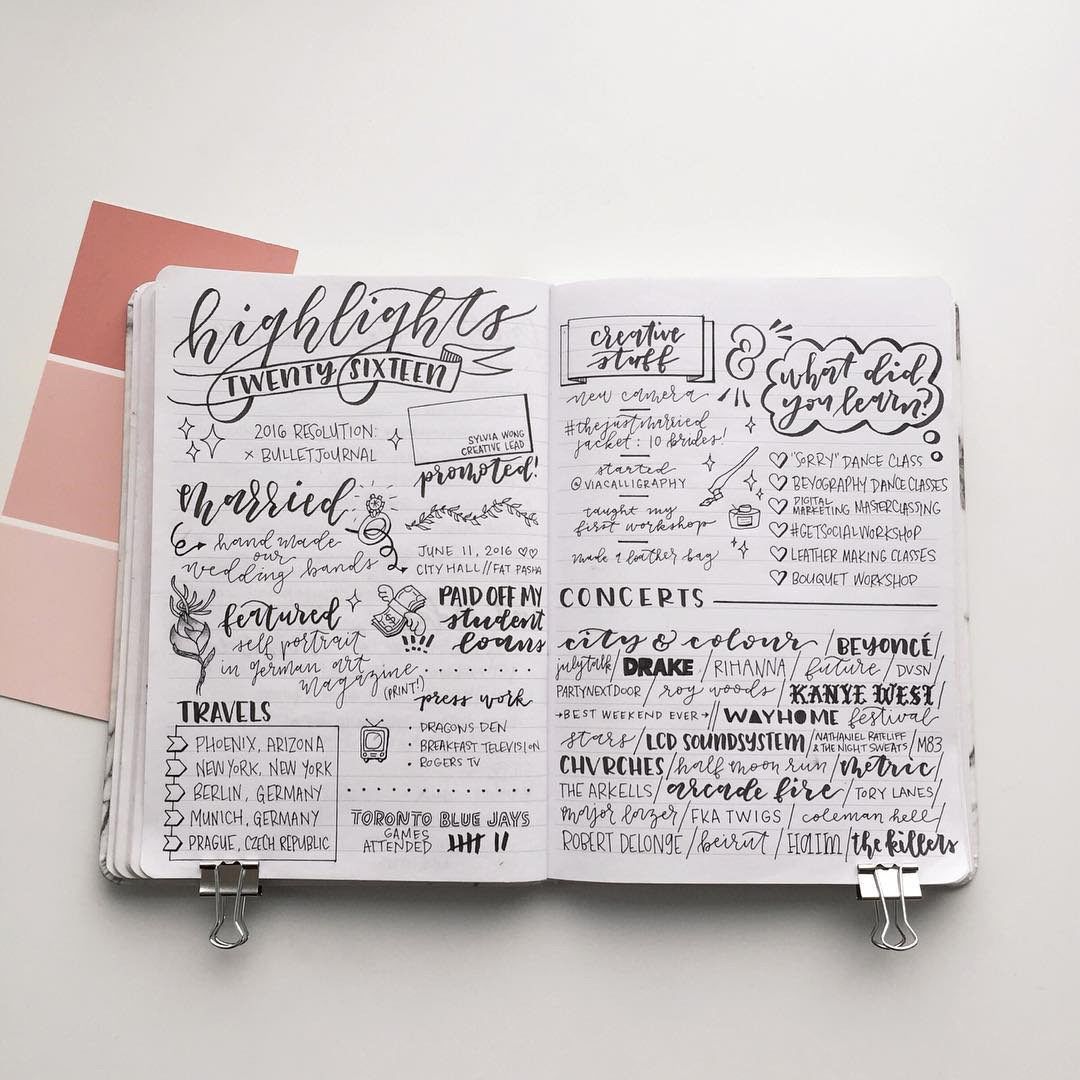 highlights
TWENTY SIXTEEN
2016 RESOLUTION:
× BULLETJOURNAL
SYLVIA WONG
CREATIVE LEAD
promoted!
married
handmade
our
wedding bands
JUNE 11, 2016 ♡♡
CITY HALL // FAT PASHA
featured
self portrait
in german art
magazine
(PRINT!)
PAID OFF MY
student
loans
press work
• DRAGONS DEN
• BREAKFAST TELEVISION
• ROGERS TV
TRAVELS
PHOENIX, ARIZONA
NEW YORK, NEW YORK
BERLIN, GERMANY
MUNICH, GERMANY
PRAGUE, CZECH REPUBLIC
TORONTO BLUE JAYS
GAMES
ATTENDED
creative
stuff
&
what did
you learn?
new camera
#thejustmarried
jacket: 10 brides!
started
@VIACALLIGRAPHY
taught my
first workshop
made a leather bag
♡ "SORRY" DANCE CLASS
♡ BEYOGRAPHY DANCE CLASSES
♡ DIGITAL
MARKETING MASTERCLASSING
♡ #GETSOCIALWORKSHOP
♡ LEATHER MAKING CLASSES
♡ BOUQUET WORKSHOP
CONCERTS
city & colour / BEYONCÉ /
july talk / DRAKE / RIHANNA / future / DVSN /
PARTYNEXTDOOR / roy woods / KANYE WEST /
→BEST WEEKEND EVER→ // WAYHOME festival
stars / LCD SOUNDSYSTEM / NATHANIEL RATELIFF & THE NIGHT SWEATS / M83
CHVRCHES / half moon run / metric /
THE ARKELLS / arcade fire / TORY LANES /
major lazer / FKA TWIGS / coleman hell /
ROBERT DELONGE / beirut / HAIM / the killers